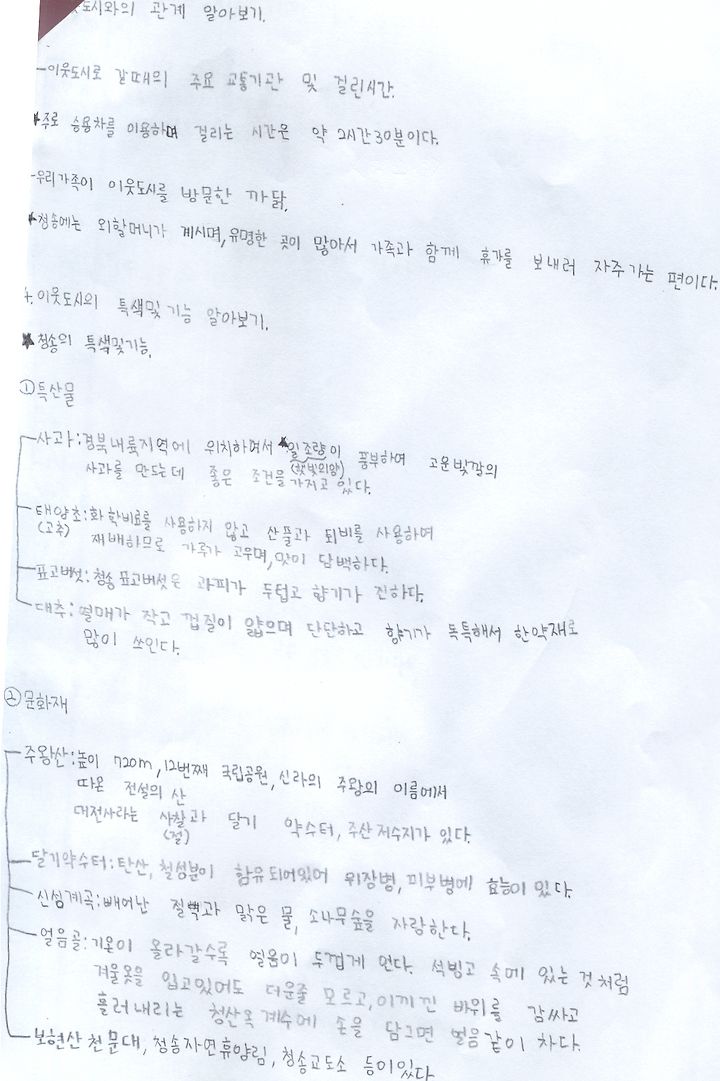 웃도시와의 관계 알아보기.
-이웃도시로 갈때의 주요 교통기관 및 걸린시간.
★주로 승용차를 이용하며 걸리는 시간은 약 2시간 30분이다.
-우리가족이 이웃도시를 방문한 까닭.
★청송에는 외할머니가 계시며, 유명한 곳이 많아서 가족과 함께 휴가를 보내러 자주가는 편이다.
4. 이웃도시의 특색및 기능 알아보기.
★청송의 특색및기능.
①특산물
사과:경북내륙지역에 위치하여서 ★일조량이 풍부하여 고운빛깔의
(햇빛의양)
사과를 만드는데 좋은 조건을 가지고 있다.
태양초:화학비료를 사용하지 않고 산풀과 퇴비를 사용하여
(고추) 재배하므로 가루가 고우며, 맛이 담백하다.
표고버섯:청송 표고버섯은 과피가 두텁고 향기가 진하다.
대추:열매가 작고 껍질이 얇으며 단단하고 향기가 독특해서 한약재로
많이 쓰인다.
②문화재
주왕산:높이 720m, 12번째 국립공원, 신라의 주왕의 이름에서
따온 전설의 산
대전사라는 사찰과 달기 약수터, 주산저수지가 있다.
(절)
달기약수터:탄산, 철성분이 함유되어있어 위장병, 피부병에 효능이 있다.
신성계곡:빼어난 절벽과 맑은 물, 소나무숲을 자랑한다.
얼음골:기온이 올라갈수록 얼음이 두껍게 언다. 석빙고 속에 있는 것처럼
겨울옷을 입고있어도 더운줄 모르고, 이끼낀 바위를 감싸고
흘러내리는 청산옥계수에 손을 담그면 얼음같이 차다.
보현산 천문대, 청송자연휴양림, 청송교도소 등이있다